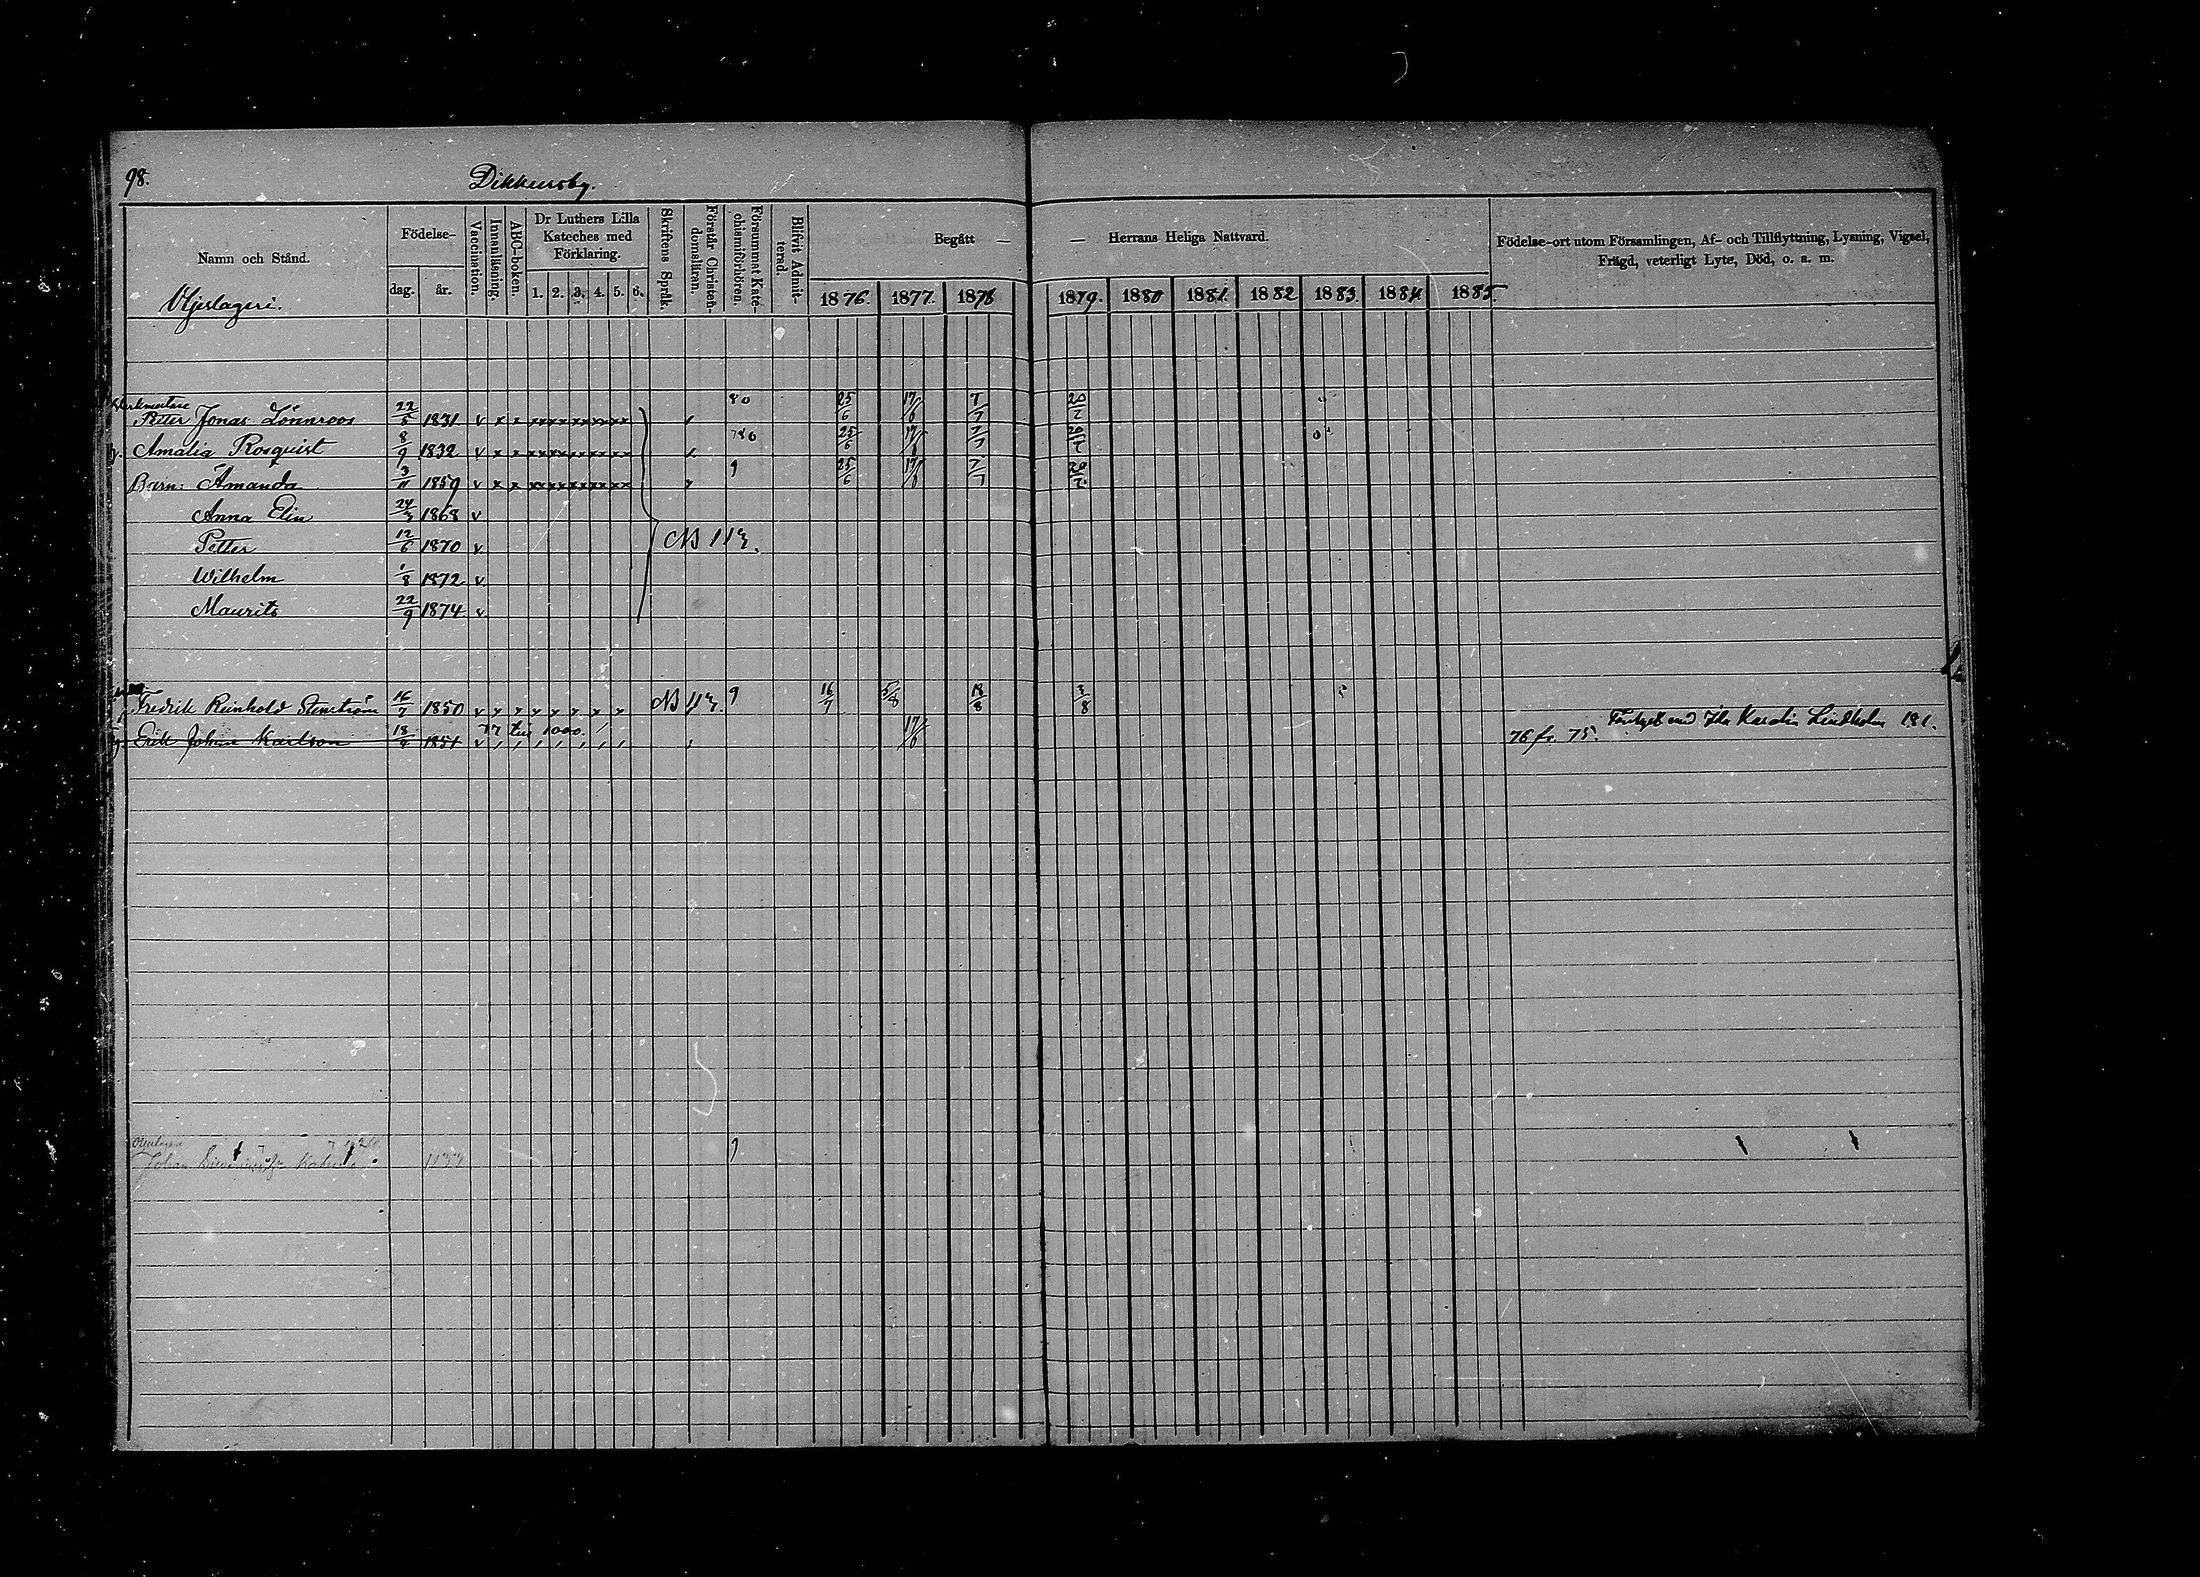 98. Dikkursby.
Namn och Stånd.
Födelse-
dag. år.
Vaccination.
Innanläsning.
ABC-boken.
Dr Luthers Lilla
Kateches med
Förklaring.
1. 2. 3. 4. 5. 6.
Skriftens Språk.
Förstår Christen-
domsläran.
Försummat Kate-
chismiförhören.
Blifvit Admit-
terad.
Begått — — Herrans Heliga Nattvard.
1876. 1877. 1878 1879. 1880 1881. 1882 1883. 1884 1885.
Födelse-ort utom Församlingen, Af- och Tillflyttning, Lysning, Vigsel,
Frägd, veterligt Lyte, Död, o. s. m.
Oljeslageri.
Petter Jonas Lönnroos 22/5 1831 v x x xxxxxxxxxx 80 25/6 17/6 7/7
Amalia Rosquist 8/9 1832 v x x xxxxxxxxxx 780 25/6 17/6 7/7
Barn: Amanda 3/11 1859 v x x xxxxxxxxxx 9 25/6 17/6 7/7
Anna Elin 24/3 1868 v
Petter 12/6 1870 v
Wilhelm 1/8 1872 v
Maurits 22/9 1874 v
Fredrik Reinhold Stenström 16/7 1850 v x x x x x x x 9 16/7 5/8 18/8 3/8
Erik Johan Karlson 1851 v 77 till 1000. 17/6 76 fr. 75.
med Ida Karolin Lindholm 181.
Johan